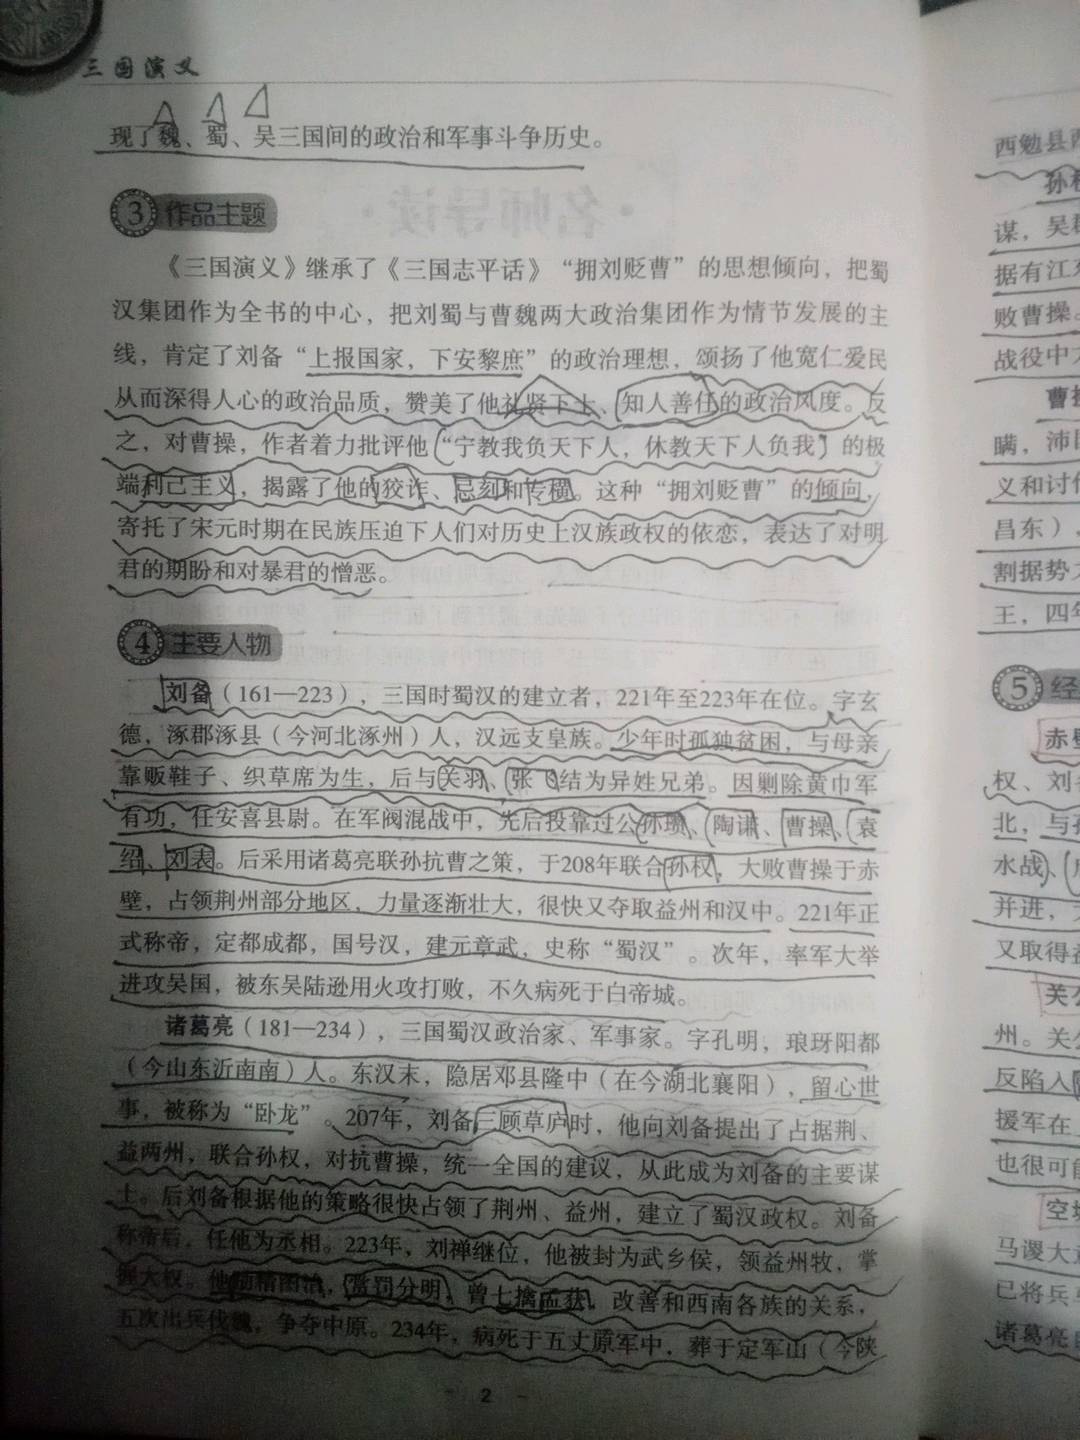 三国演义
现了魏、蜀、吴三国间的政治和军事斗争历史。
3 作品主题
《三国演义》继承了《三国志平话》“拥刘贬曹”的思想倾向，把蜀
汉集团作为全书的中心，把刘蜀与曹魏两大政治集团作为情节发展的主
线，肯定了刘备“上报国家，下安黎庶”的政治理想，颂扬了他宽仁爱民
从而深得人心的政治品质，赞美了他礼贤下士、知人善任的政治风度。反
之，对曹操，作者着力批评他“宁教我负天下人，休教天下人负我”的极
端利己主义，揭露了他的狡诈、忌刻和专横。这种“拥刘贬曹”的倾向，
寄托了宋元时期在民族压迫下人们对历史上汉族政权的依恋，表达了对明
君的期盼和对暴君的憎恶。
4 主要人物
刘备（161—223），三国时蜀汉的建立者，221年至223年在位。字玄
德，涿郡涿县（今河北涿州）人，汉远支皇族。少年时孤独贫困，与母亲
靠贩鞋子、织草席为生，后与关羽、张飞结为异姓兄弟。因剿除黄巾军
有功，任安喜县尉。在军阀混战中，先后投靠过公孙瓒、陶谦、曹操、袁
绍、刘表。后采用诸葛亮联孙抗曹之策，于208年联合孙权，大败曹操于赤
壁，占领荆州部分地区，力量逐渐壮大，很快又夺取益州和汉中。221年正
式称帝，定都成都，国号汉，建元章武，史称“蜀汉”。次年，率军大举
进攻吴国，被东吴陆逊用火攻打败，不久病死于白帝城。
诸葛亮（181—234），三国蜀汉政治家、军事家。字孔明，琅玡阳都
（今山东沂南南）人。东汉末，隐居邓县隆中（在今湖北襄阳），留心世
事，被称为“卧龙”。207年，刘备三顾草庐时，他向刘备提出了占据荆、
益两州，联合孙权，对抗曹操，统一全国的建议，从此成为刘备的主要谋
士。后刘备根据他的策略很快占领了荆州、益州，建立了蜀汉政权。刘备
称帝后，任他为丞相。223年，刘禅继位，他被封为武乡侯，领益州牧，掌
握大权。他励精图治，赏罚分明，曾七擒孟获，改善和西南各族的关系，
五次出兵伐魏，争夺中原。234年，病死于五丈原军中，葬于定军山（今陕
2
西勉县
孙
谋，吴
据有江
败曹操。
战役中
曹
瞒，沛
义和讨
昌东），
割据势
王，四年
5 经
赤壁
权、刘
北，与
水战、
并进，
又取得
关
州。关
反陷入
援军在
也很可
空
马谡大
已将兵
诸葛亮